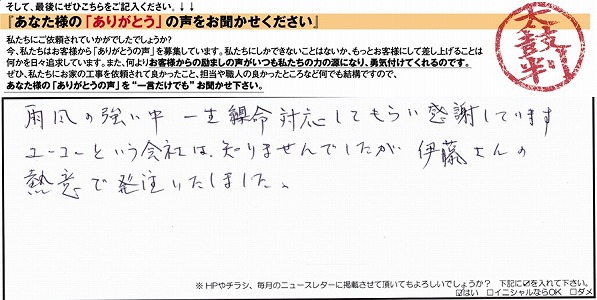 そして、最後にぜひこちらをご記入ください。↓↓
『あなた様の「ありがとう」の声をお聞かせください』
私たちにご依頼されていかがでしたでしょうか?
今、私たちはお客様から「ありがとうの声」を募集しています。私たちにしかできないことはないか、もっとお客様にして差し上げることは
何かを日々追求しています。また、何よりお客様からの励ましの声がいつも私たちの力の源になり、勇気付けてくれるのです。
ぜひ、私たちにお家の工事を依頼されて良かったこと、担当や職人の良かったところなど何でも結構ですので、
あなた様の「ありがとうの声」を“一言だけでも”お聞かせ下さい。
太鼓判
雨風の強い中 一生懸命 対応してもらい 感謝しています
ユーコーという会社は、知りませんでしたが 伊藤さんの
熱意で発注いたしました。
※HPやチラシ、毎月のニュースレターに掲載させて頂いてもよろしいでしょうか? 下記に☑を入れて下さい。
☑はい □イニシャルならOK □ダメ